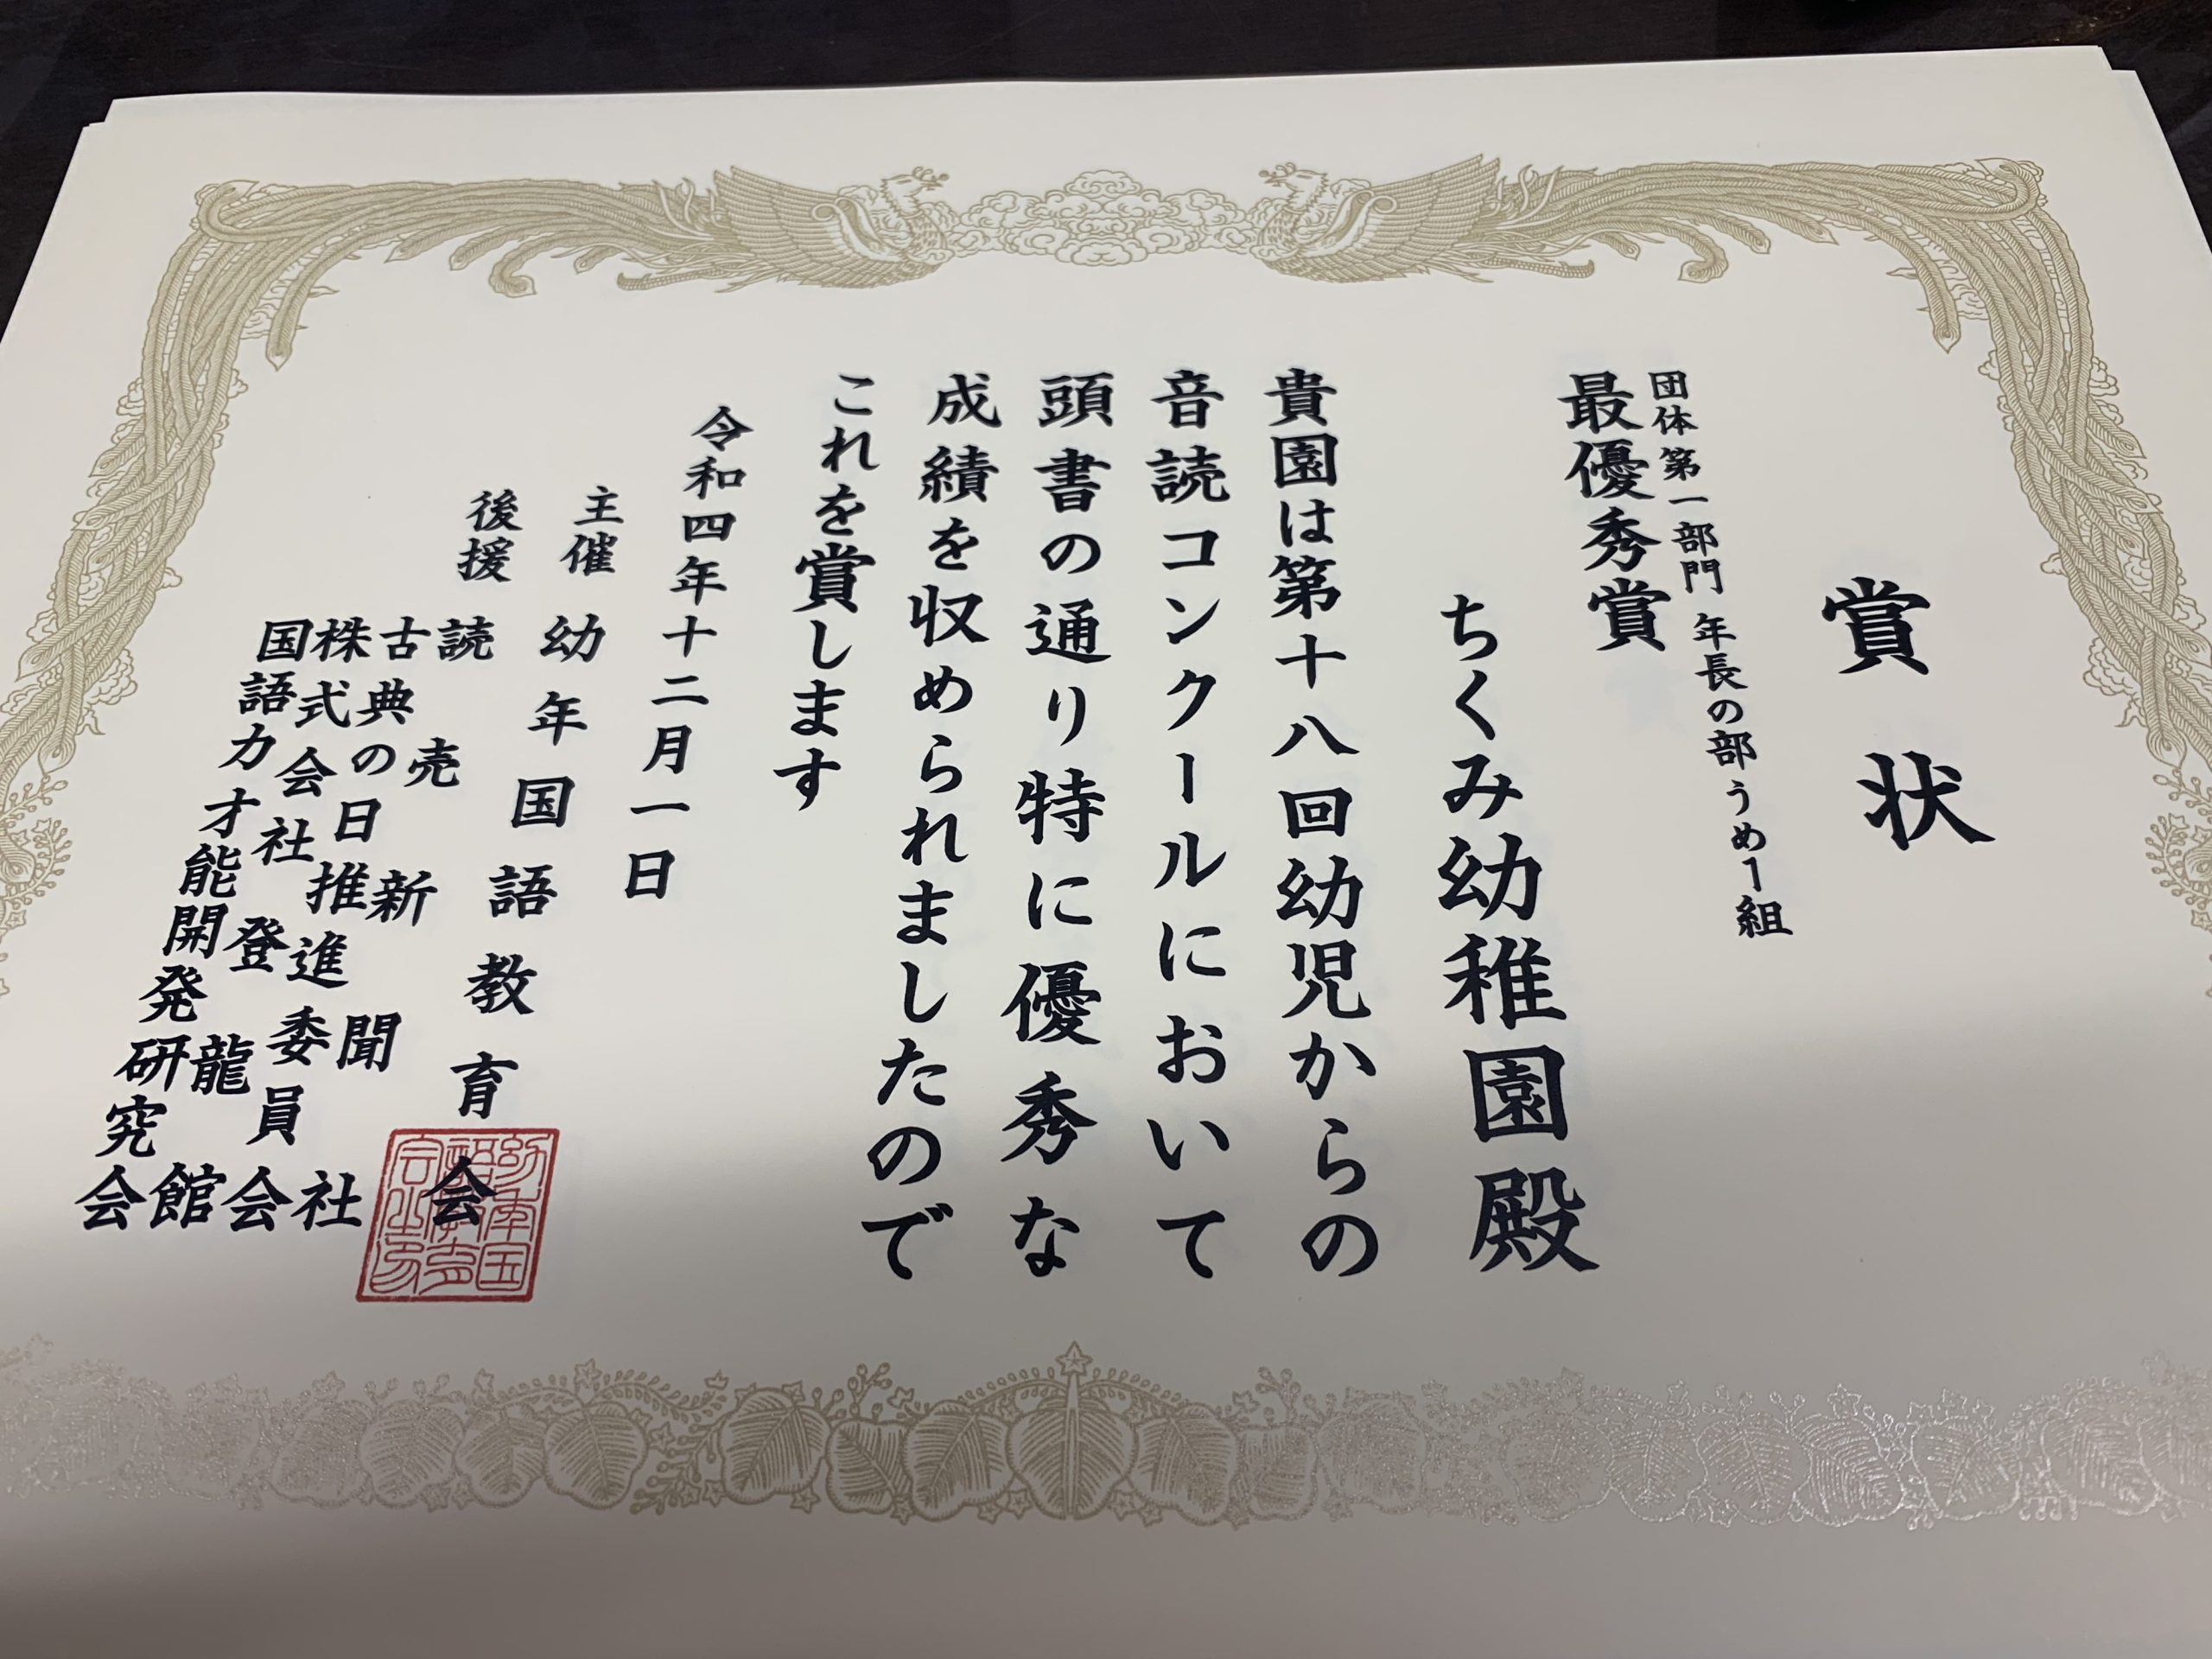 賞状
団体第一部門 年長の部 うめ1組
最優秀賞
ちくみ幼稚園殿
貴園は第十八回幼児からの
音読コンクールにおいて
頭書の通り特に優秀な
成績を収められましたので
これを賞します
令和四年十二月一日
主催 幼年国語教育会
後援 読売新聞社
古典の日推進委員会
株式会社登龍館
国語力才能開発研究会